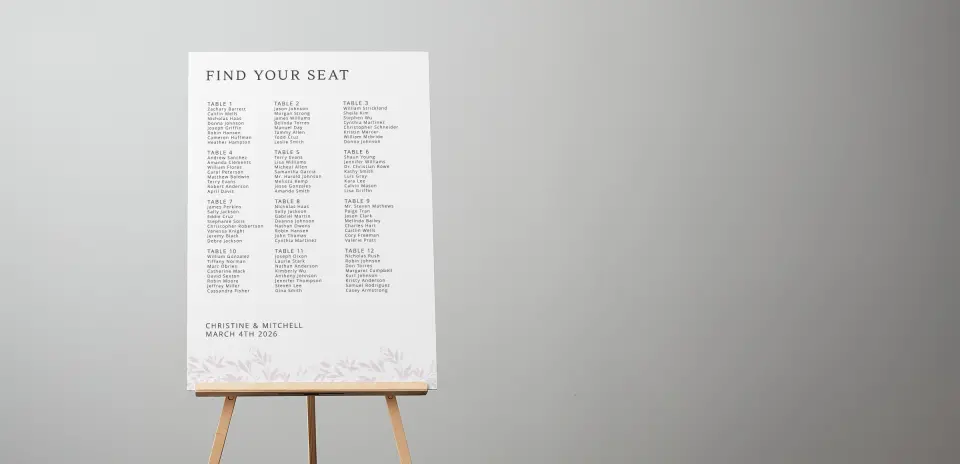 FIND YOUR SEAT
TABLE 1
Zachary Barrett
Caitlin Wells
Nicholas Haas
Donna Johnson
Joseph Griffin
Robin Hansen
Cameron Huffman
Heather Hampton
TABLE 2
Jason Johnson
Morgan Strong
James Williams
Belinda Torres
Manuel Day
Tammy Allen
Todd Cruz
Leslie Smith
TABLE 3
William Strickland
Sheila Kim
Stephen Wu
Cynthia Martinez
Christopher Schneider
Kristin Mercer
William McBride
Donna Johnson
TABLE 4
Andrew Sanchez
Amanda Clements
William Flores
Carol Peterson
Matthew Baldwin
Terry Evans
Robert Anderson
April Davis
TABLE 5
Terry Evans
Lisa Williams
Micheal Allen
Samantha Garcia
Mr. Harold Johnson
Melissa Kemp
Jesus Gonzales
Amanda Smith
TABLE 6
Shaun Young
Jennifer Williams
Dr. Christian Rowe
Kathy Smith
Luis Gray
Kara Lee
Calvin Mason
Lisa Griffin
TABLE 7
James Perkins
Sally Jackson
Eddie Cruz
Stephanie Solis
Christopher Robertson
Vanessa Knight
Jeremy Black
Debra Jackson
TABLE 8
Nicholas Haas
Sally Jackson
Gabriel Martin
Deanna Johnson
Nathan Owens
Robin Hansen
John Thomas
Cynthia Martinez
TABLE 9
Mr. Steven Mathews
Paige Tran
Jason Clark
Melinda Bailey
Charles Hart
Caitlin Wells
Cory Freeman
Valerie Pratt
TABLE 10
William Gonzalez
Tiffany Norman
Marc Obrien
Catherine Mack
David Sexton
Robin Moore
Jeffrey Miller
Cassandra Fisher
TABLE 11
Joseph Dixon
Laurie Stark
Nathan Anderson
Kimberly Wu
Anthony Johnson
Jennifer Thompson
Steven Lee
Gina Smith
TABLE 12
Nicholas Rush
Robin Johnson
Don Torres
Margaret Campbell
Kurt Johnson
Kristy Anderson
Samuel Rodriguez
Casey Armstrong
CHRISTINE & MITCHELL
MARCH 4TH 2026